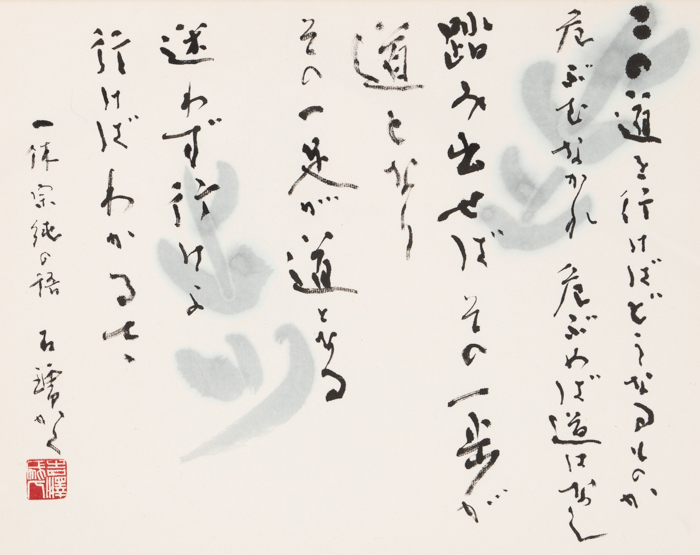 この道を行けばどうなるものか
危ぶむなかれ 危ぶめば道はなし
踏み出せば その一歩が
道となり
その一足が 道となる
迷わず行けよ
行けばわかるさ
一休宗純の語 石 かく
吉澤